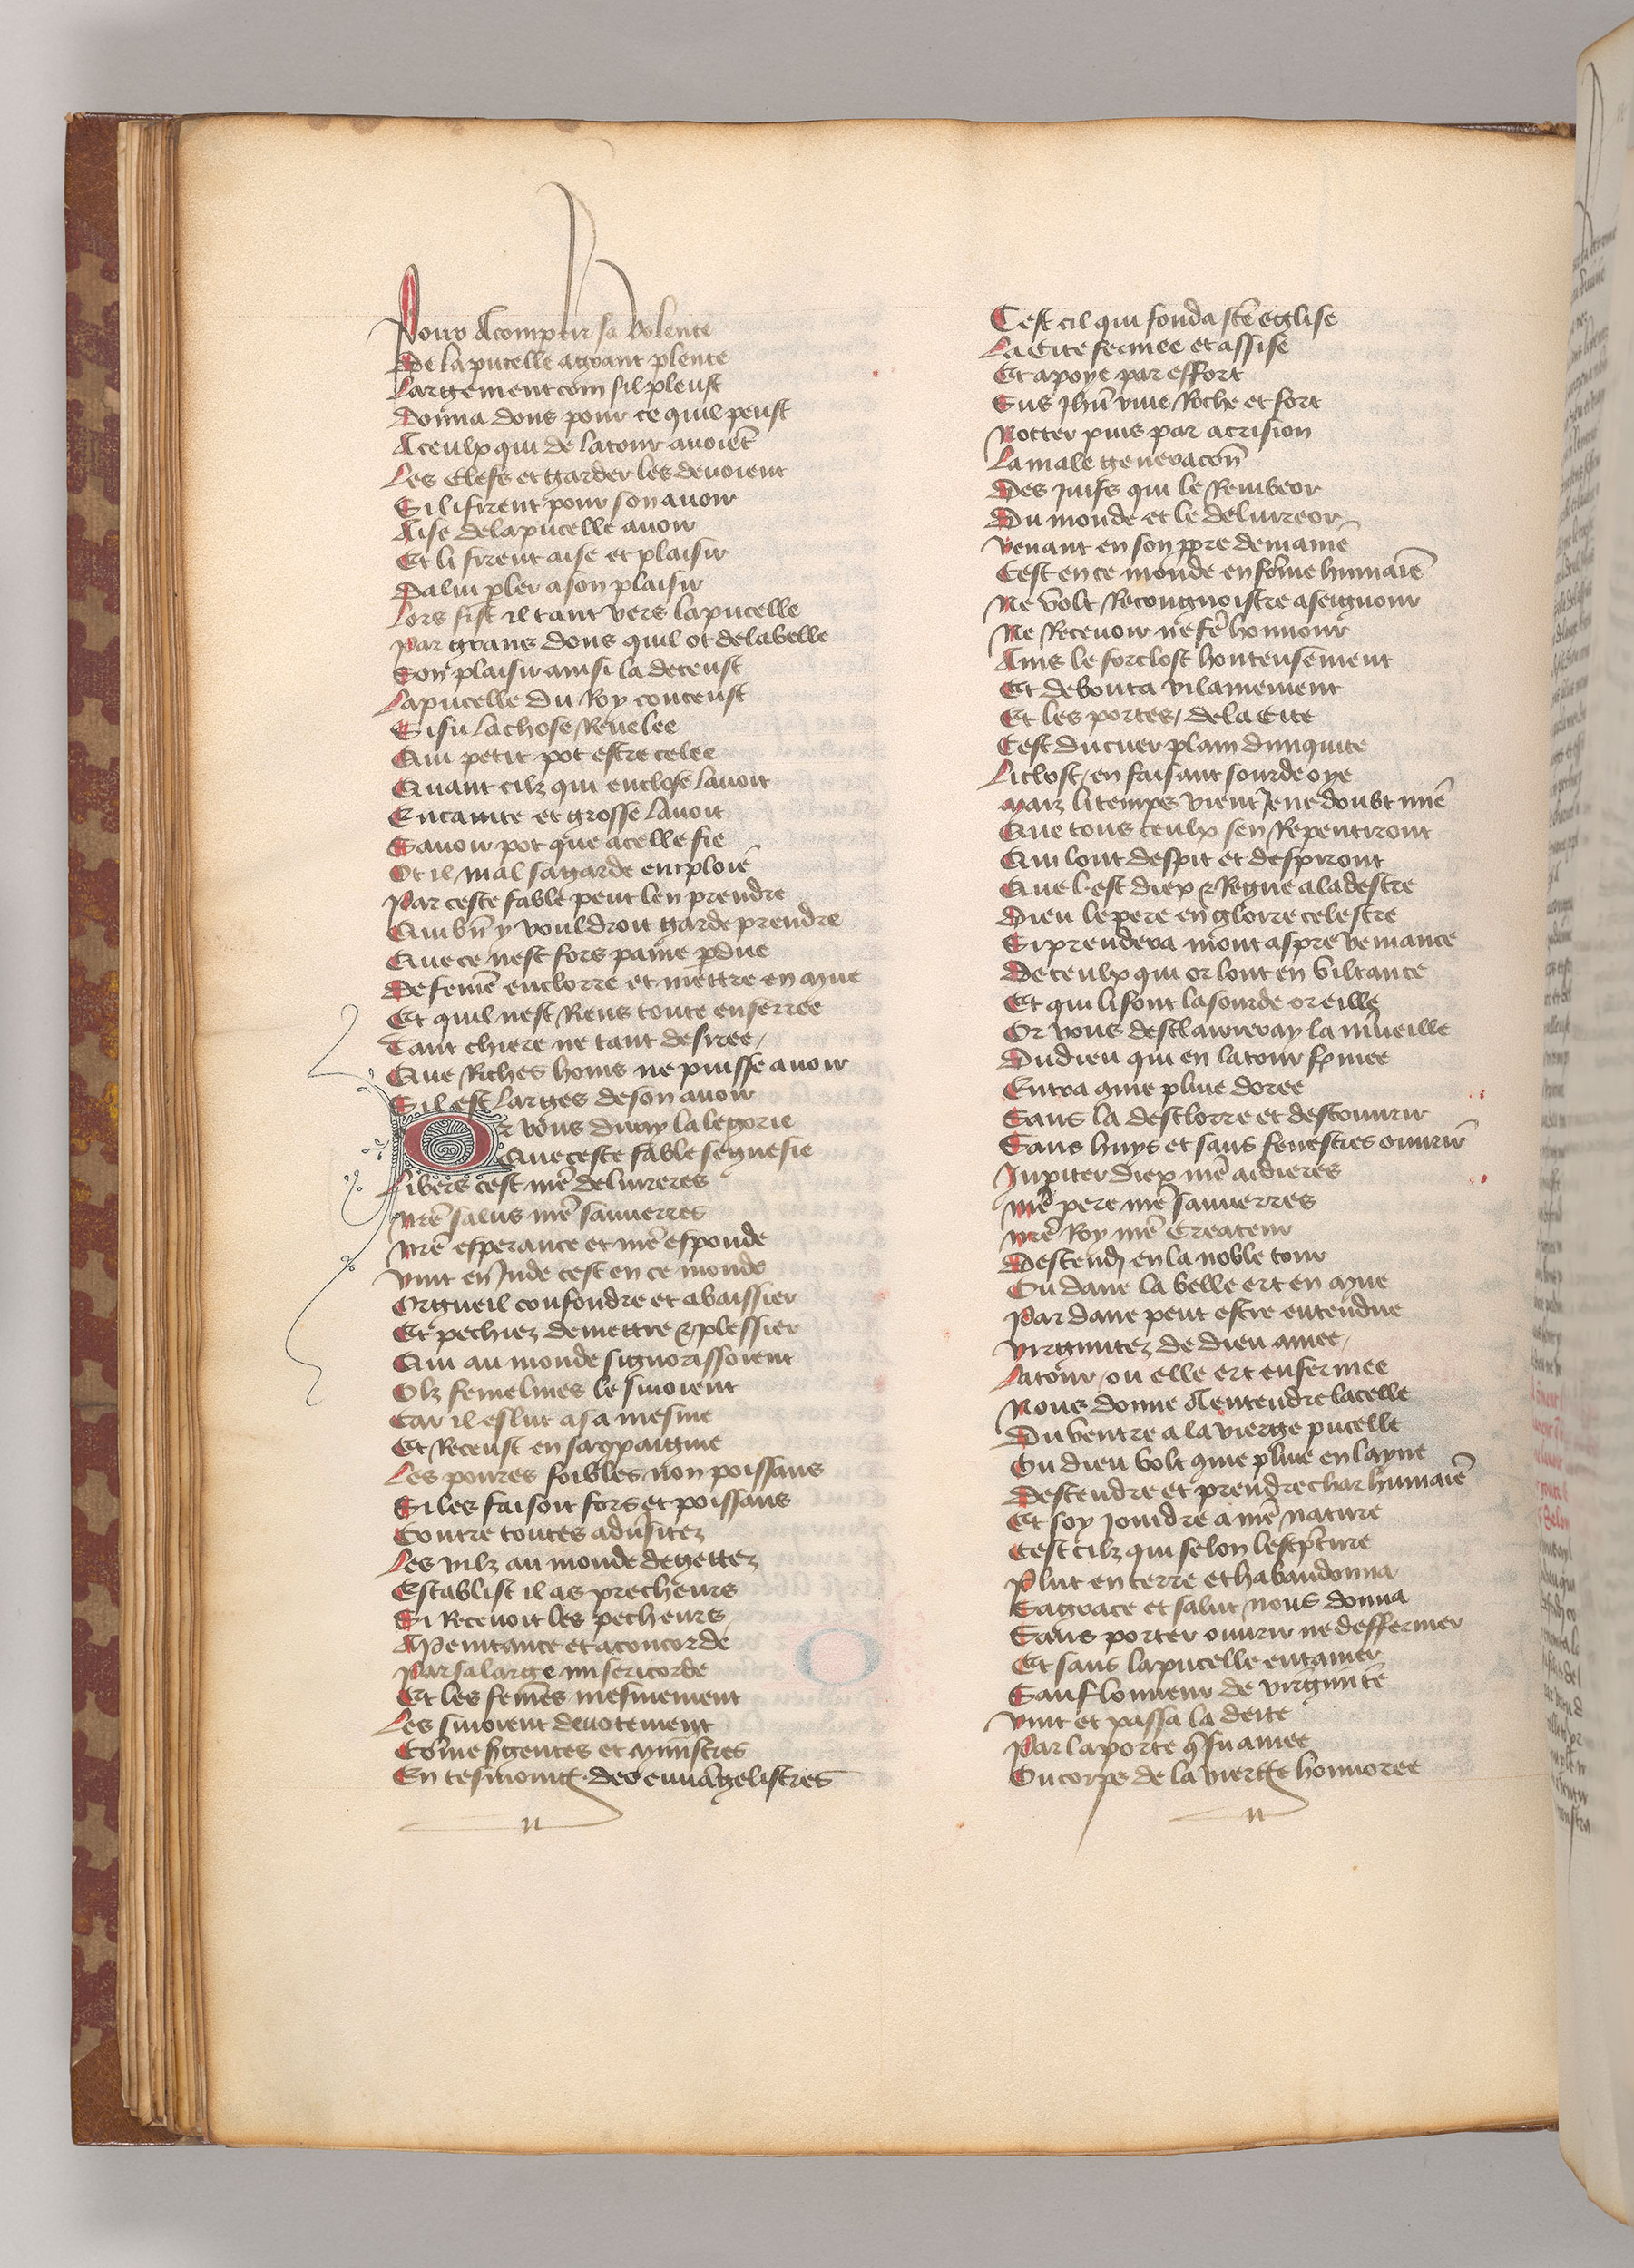 Pour Acomplir sa volente
De la pucelle agrant plente
Largement com sil pleust
Donna dons pour ce quil peust
Aceulx qui de latour auoiēt
Les Clefs et garder les deuoient
Si li firent pour son auoir
Aise delapucelle auoir
Et li firent aise et plaisir
Daluj pler a son plaisir
Lors fist il tant vers lapucelle
Par grans dons quil ot delabelle
Son plaisir ainsi la deceust
Lapucelle du Roy conceust
Si fu lachose Reuelee
Qui petit pot estre celee
Quant cilz qui enclose lauoit
Encainte et grosse lauoit
Sauoir pot que acelle fie
Ot il mal sagarde emploie
Par ceste fable peut len prendre
Qui bn̄ y vouldroit garde prendre
Que ce nest fors paine pdue
De femē enclorre et mettre en mue
Et quil nest Rens toute enserree
Tant chiere ne tant desiree
Que Riches homs ne puisse auoir
Sil est larges deson auoir
Or vous diray la legorie
Que ceste fable segnefie
Libers cest nrē deliureres
Nrē salus nrē sauuerres
Nrē esperance et nrē esponde
Vint en Jnde cest en ce monde
Orgueil confondre et abaissier
Et pechiez demettre & plessier
Qui au monde signorissoient
Olz femelines le siuoient
Car il eslut asa mesme
Et Receust en sacōpaignie
Les poures foibles non poissans
Si les faisoit fors et poissans
Contre toutes aduſitez
Les vilz au monde degettez
Establist il as precheurs
Si Receuoit les pecheurs
A penitance et aconcorde
Par sa large misericorde
Et les femēs mesmement
Les siuoient deuotement
Cōme ſigentes et ministres
En tesmoing des euuangelistres
Cest cil qui fonda stē eglise
La Cite fermee et assise
Et apoye par effort
Sus jhū viue Roche et fort
Notter puis par acrision
La male generacōn
Des juifs qui le Rembeor
Du monde et le deliureor
Venant en son ppre demaine
Cest en ce monde en fōme humaiē
Ne volt Recongnoistre a seignour
Ne Receuoir ne fē honnour
Ains le forclost honteusement
Et debouta vilainement
Et les portes dela Cite
Cest du cuer plain diniquite
Li clost en faisant sourde oye
Maiz li temps vient Je ne doubt mie
Que tous ceulx sen Repentiront
Qui lont despit et despiront
Que l est diex & Regne aladestre
Dieu le pere en gloire celestre
Si prendera mont aspre veniance
De ceulx qui or lont en viltance
Et qui li font la sourde oreille
Or vous desclaireray la m̄ueille
Du dieu qui en latour fmee
Entra cōme pluie doree
Sans la desclorre et descouurir
Sans huys et sans fenestres ouurir
Jupiter diex nrē aidieres
Nrē pere nrē sauuerres
Nrē Roy nrē Createur
Descendj en la noble tour
Ou dane la belle ert en mue
Par dane peut estre entendue
Virginitez de dieu amee
Latour ou elle ert enfermee
Nous donne Aentendre lacelle
Du ventre a la vierge pucelle
Ou dieu volt cōme pluie en layne
Descendre et prendre char humaiē
Et soy joindre a nrē nature
Cest cilz qui selon lescpture
Plut en terre et habandonna
Sagrace et salut nous donna
Sans porter ouurir ne deffermer
Et sans lapucelle entamer
Sauf lonneur de virginite
Vint et passa la deite
Par la porte q̄ fu amee
Ou corps de la vierge honnoree